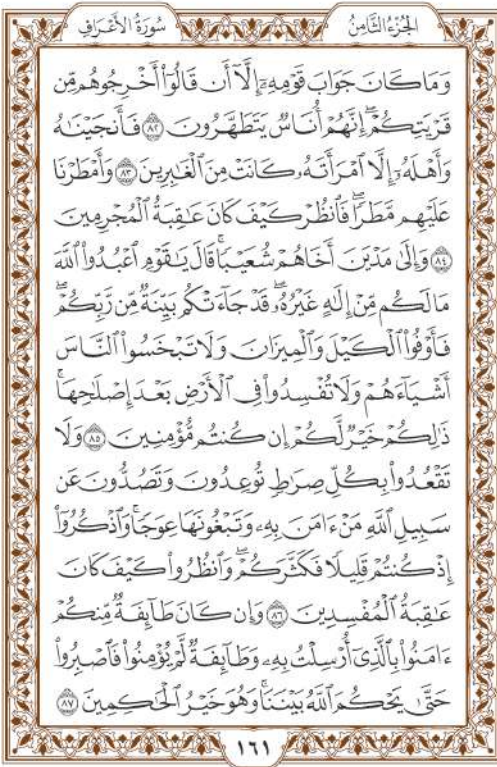 الجُزْءُ الثَّامِنُ
سُورَةُ الأَعْرَافِ
وَمَا كَانَ جَوَابَ قَوْمِهِۦٓ إِلَّآ أَن قَالُوٓا۟ أَخْرِجُوهُم مِّن
قَرْيَتِكُمْ ۖ إِنَّهُمْ أُنَاسٌ يَتَطَهَّرُونَ ﴿٨٢﴾ فَأَنجَيْنَٰهُ
وَأَهْلَهُۥٓ إِلَّا ٱمْرَأَتَهُۥ كَانَتْ مِنَ ٱلْغَٰبِرِينَ ﴿٨٣﴾ وَأَمْطَرْنَا
عَلَيْهِم مَّطَرًا ۖ فَٱنظُرْ كَيْفَ كَانَ عَٰقِبَةُ ٱلْمُجْرِمِينَ
﴿٨٤﴾ وَإِلَىٰ مَدْيَنَ أَخَاهُمْ شُعَيْبًا ۗ قَالَ يَٰقَوْمِ ٱعْبُدُوا۟ ٱللَّهَ
مَا لَكُم مِّنْ إِلَٰهٍ غَيْرُهُۥ ۖ قَدْ جَآءَتْكُم بَيِّنَةٌ مِّن رَّبِّكُمْ ۖ
فَأَوْفُوا۟ ٱلْكَيْلَ وَٱلْمِيزَانَ وَلَا تَبْخَسُوا۟ ٱلنَّاسَ
أَشْيَآءَهُمْ وَلَا تُفْسِدُوا۟ فِى ٱلْأَرْضِ بَعْدَ إِصْلَٰحِهَا ۚ
ذَٰلِكُمْ خَيْرٌ لَّكُمْ إِن كُنتُم مُّؤْمِنِينَ ﴿٨٥﴾ وَلَا
تَقْعُدُوا۟ بِكُلِّ صِرَٰطٍ تُوعِدُونَ وَتَصُدُّونَ عَن
سَبِيلِ ٱللَّهِ مَنْ ءَامَنَ بِهِۦ وَتَبْغُونَهَا عِوَجًا ۚ وَٱذْكُرُوٓا۟
إِذْ كُنتُمْ قَلِيلًا فَكَثَّرَكُمْ ۖ وَٱنظُرُوا۟ كَيْفَ كَانَ
عَٰقِبَةُ ٱلْمُفْسِدِينَ ﴿٨٦﴾ وَإِن كَانَ طَآئِفَةٌ مِّنكُمْ
ءَامَنُوا۟ بِٱلَّذِىٓ أُرْسِلْتُ بِهِۦ وَطَآئِفَةٌ لَّمْ يُؤْمِنُوا۟ فَٱصْبِرُوا۟
حَتَّىٰ يَحْكُمَ ٱللَّهُ بَيْنَنَا ۚ وَهُوَ خَيْرُ ٱلْحَٰكِمِينَ ﴿٨٧﴾
١٦١